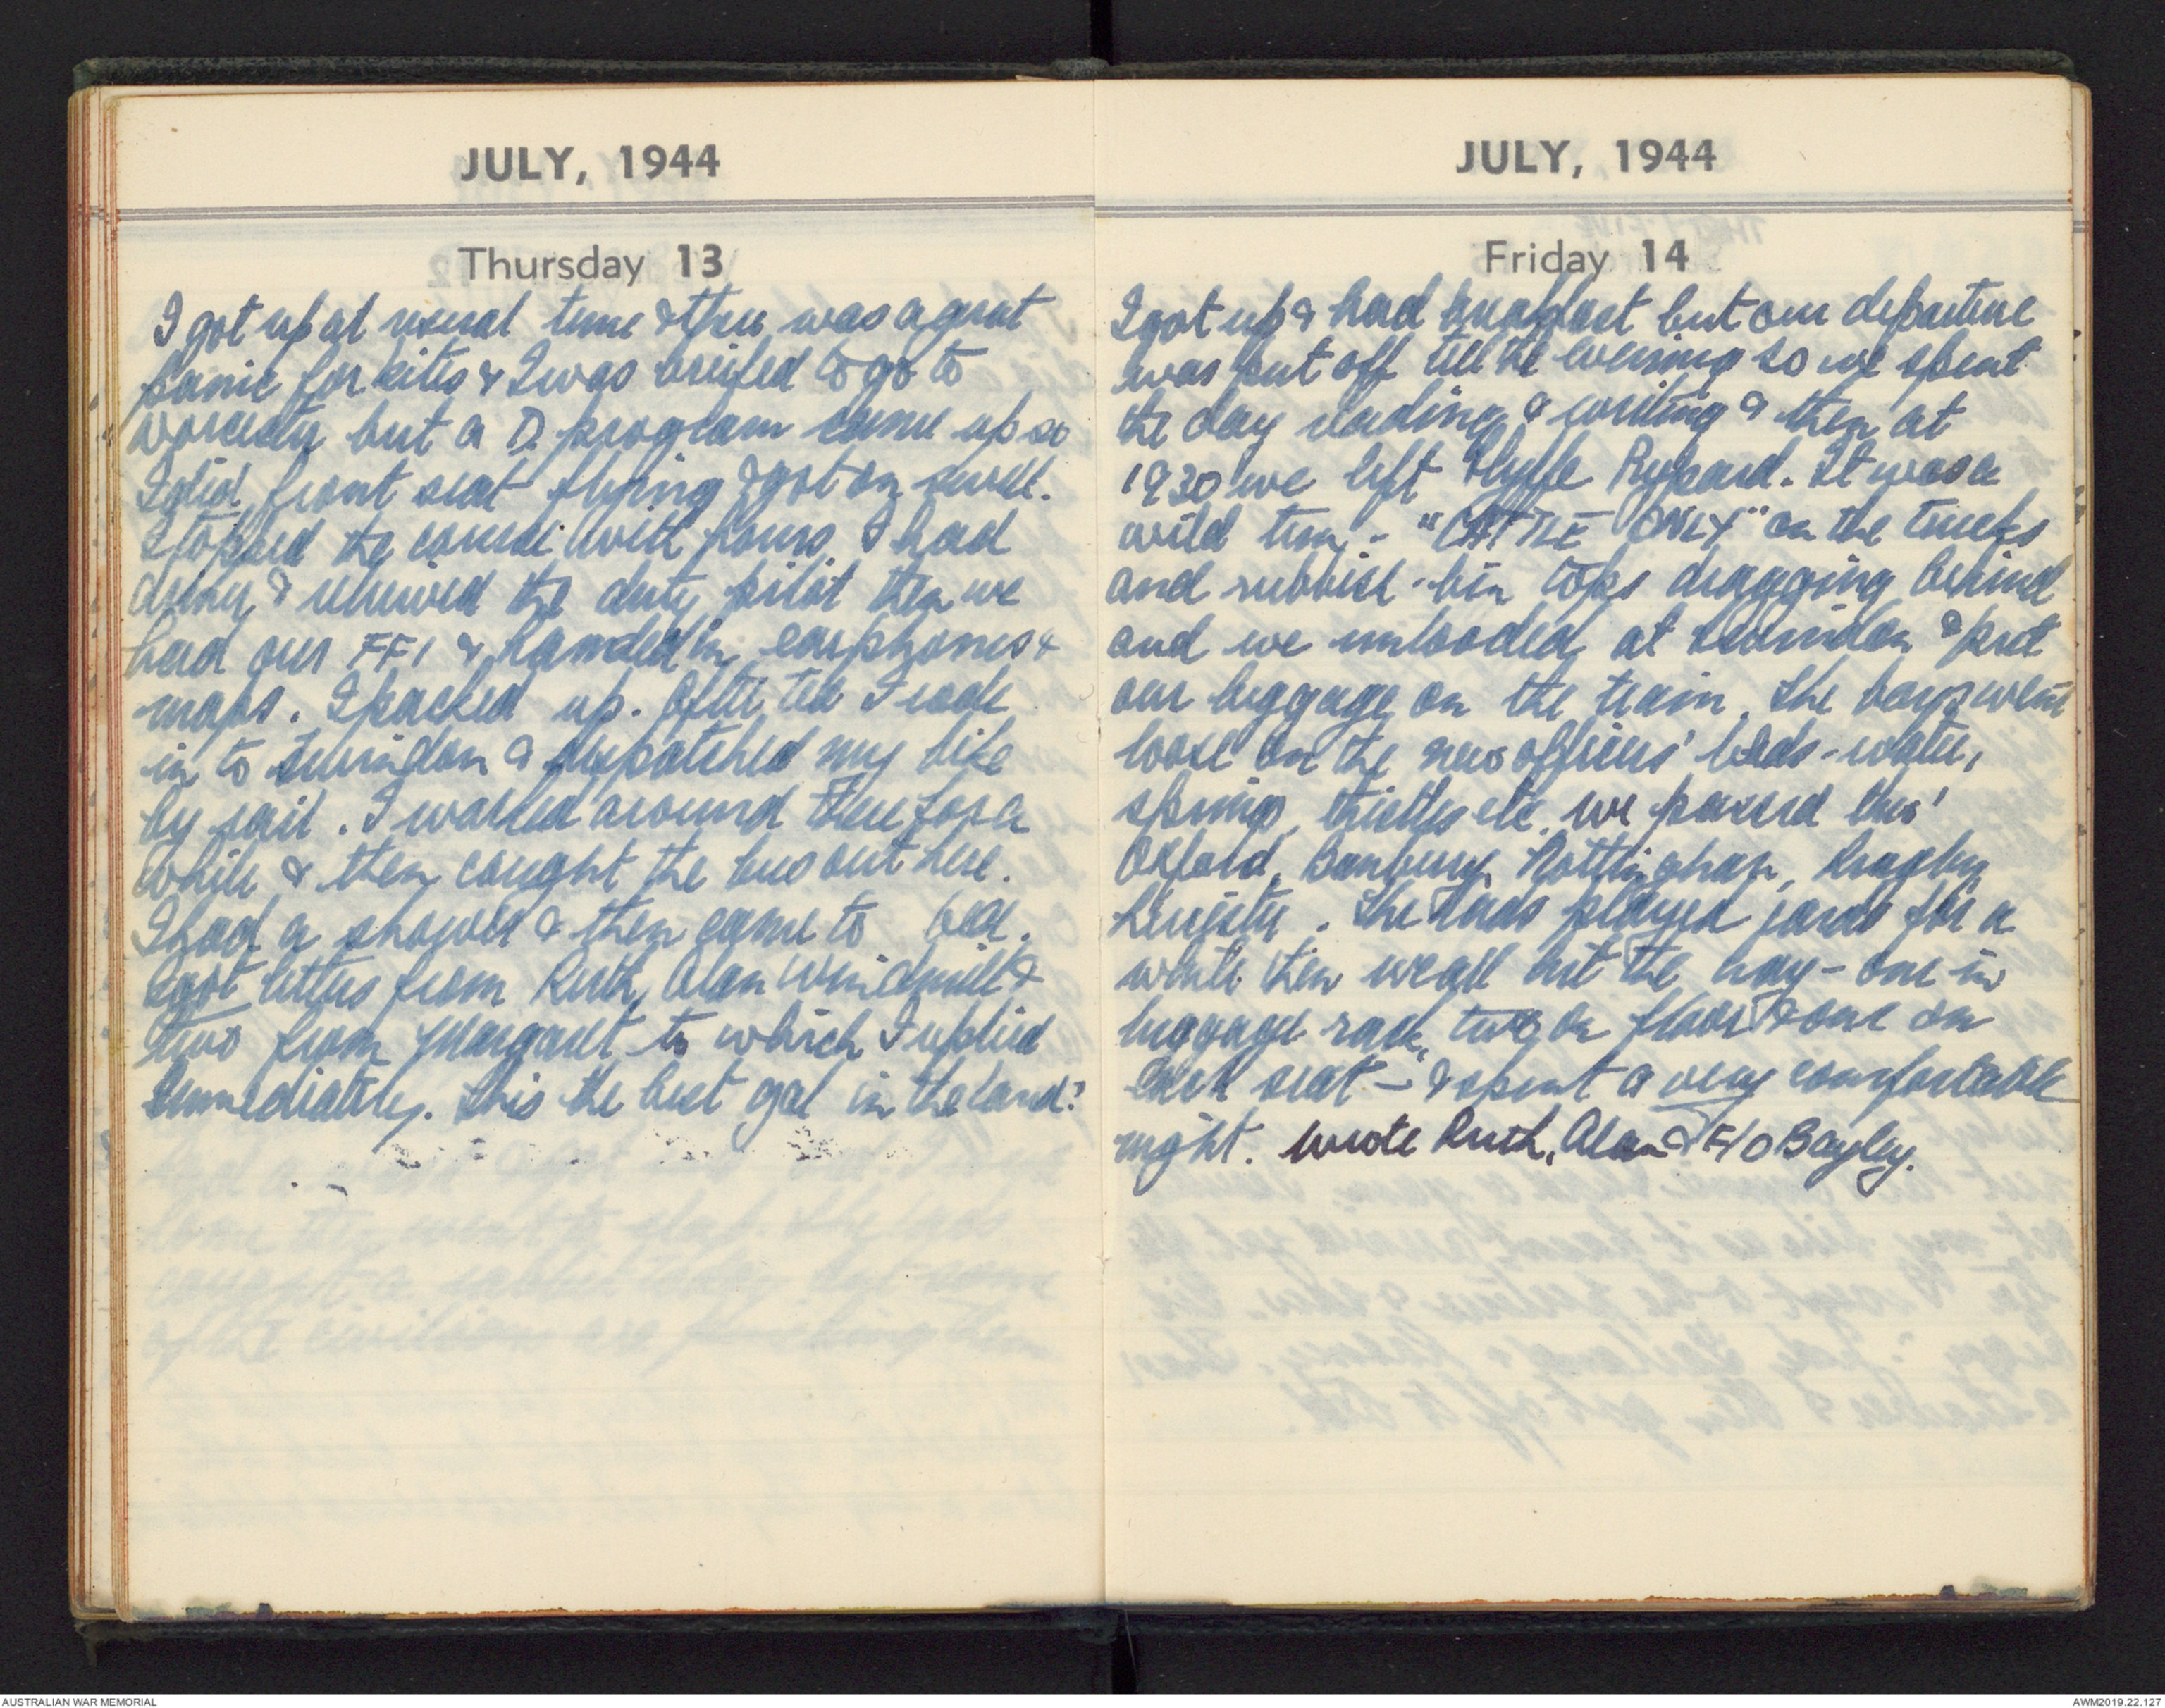 JULY, 1944
Thursday 13
I got up at usual time & there was a great
panic for kites & I was briefed to go to
Worcester but a D. program came up so
I did front seat flying & got on swell.
I topped the course with hours. I had
dinner, & relieved the duty pilot then we
had our FFI & handed in earphones &
maps. I packed up. After tea I rode
in to Swindon & despatched my bike
by rail. I walked around there for a
while & then caught the bus out here.
I had a shower & then came to bed.
Got letters from Ruth, Alan Windmill &
two from Margaret to which I replied
immediately. She's the best gal in the land!
JULY, 1944
Friday 14
I got up & had breakfast but our departure
was put off till the evening so we spent
the day reading & writing & then at
1930 we left Clyffe Pypard. It was a
wild time - "CATTLE ONLY" on the trucks
and rubbish-bin tops dragging behind
and we unloaded at Swindon & put
our luggage on the train. The boys went
loose on the new officers' beds - water,
springs, thistles etc. We passed thro'
Oxford, Banbury, Nottingham, Rugby,
Leicester. The lads played cards for a
while then we all hit the hay - one in
luggage rack, two on floor & one on
each seat - & spent a very comfortable
night. Wrote Ruth, Alan & F/O Bayley.
AUSTRALIAN WAR MEMORIAL
AWM2019.22.127